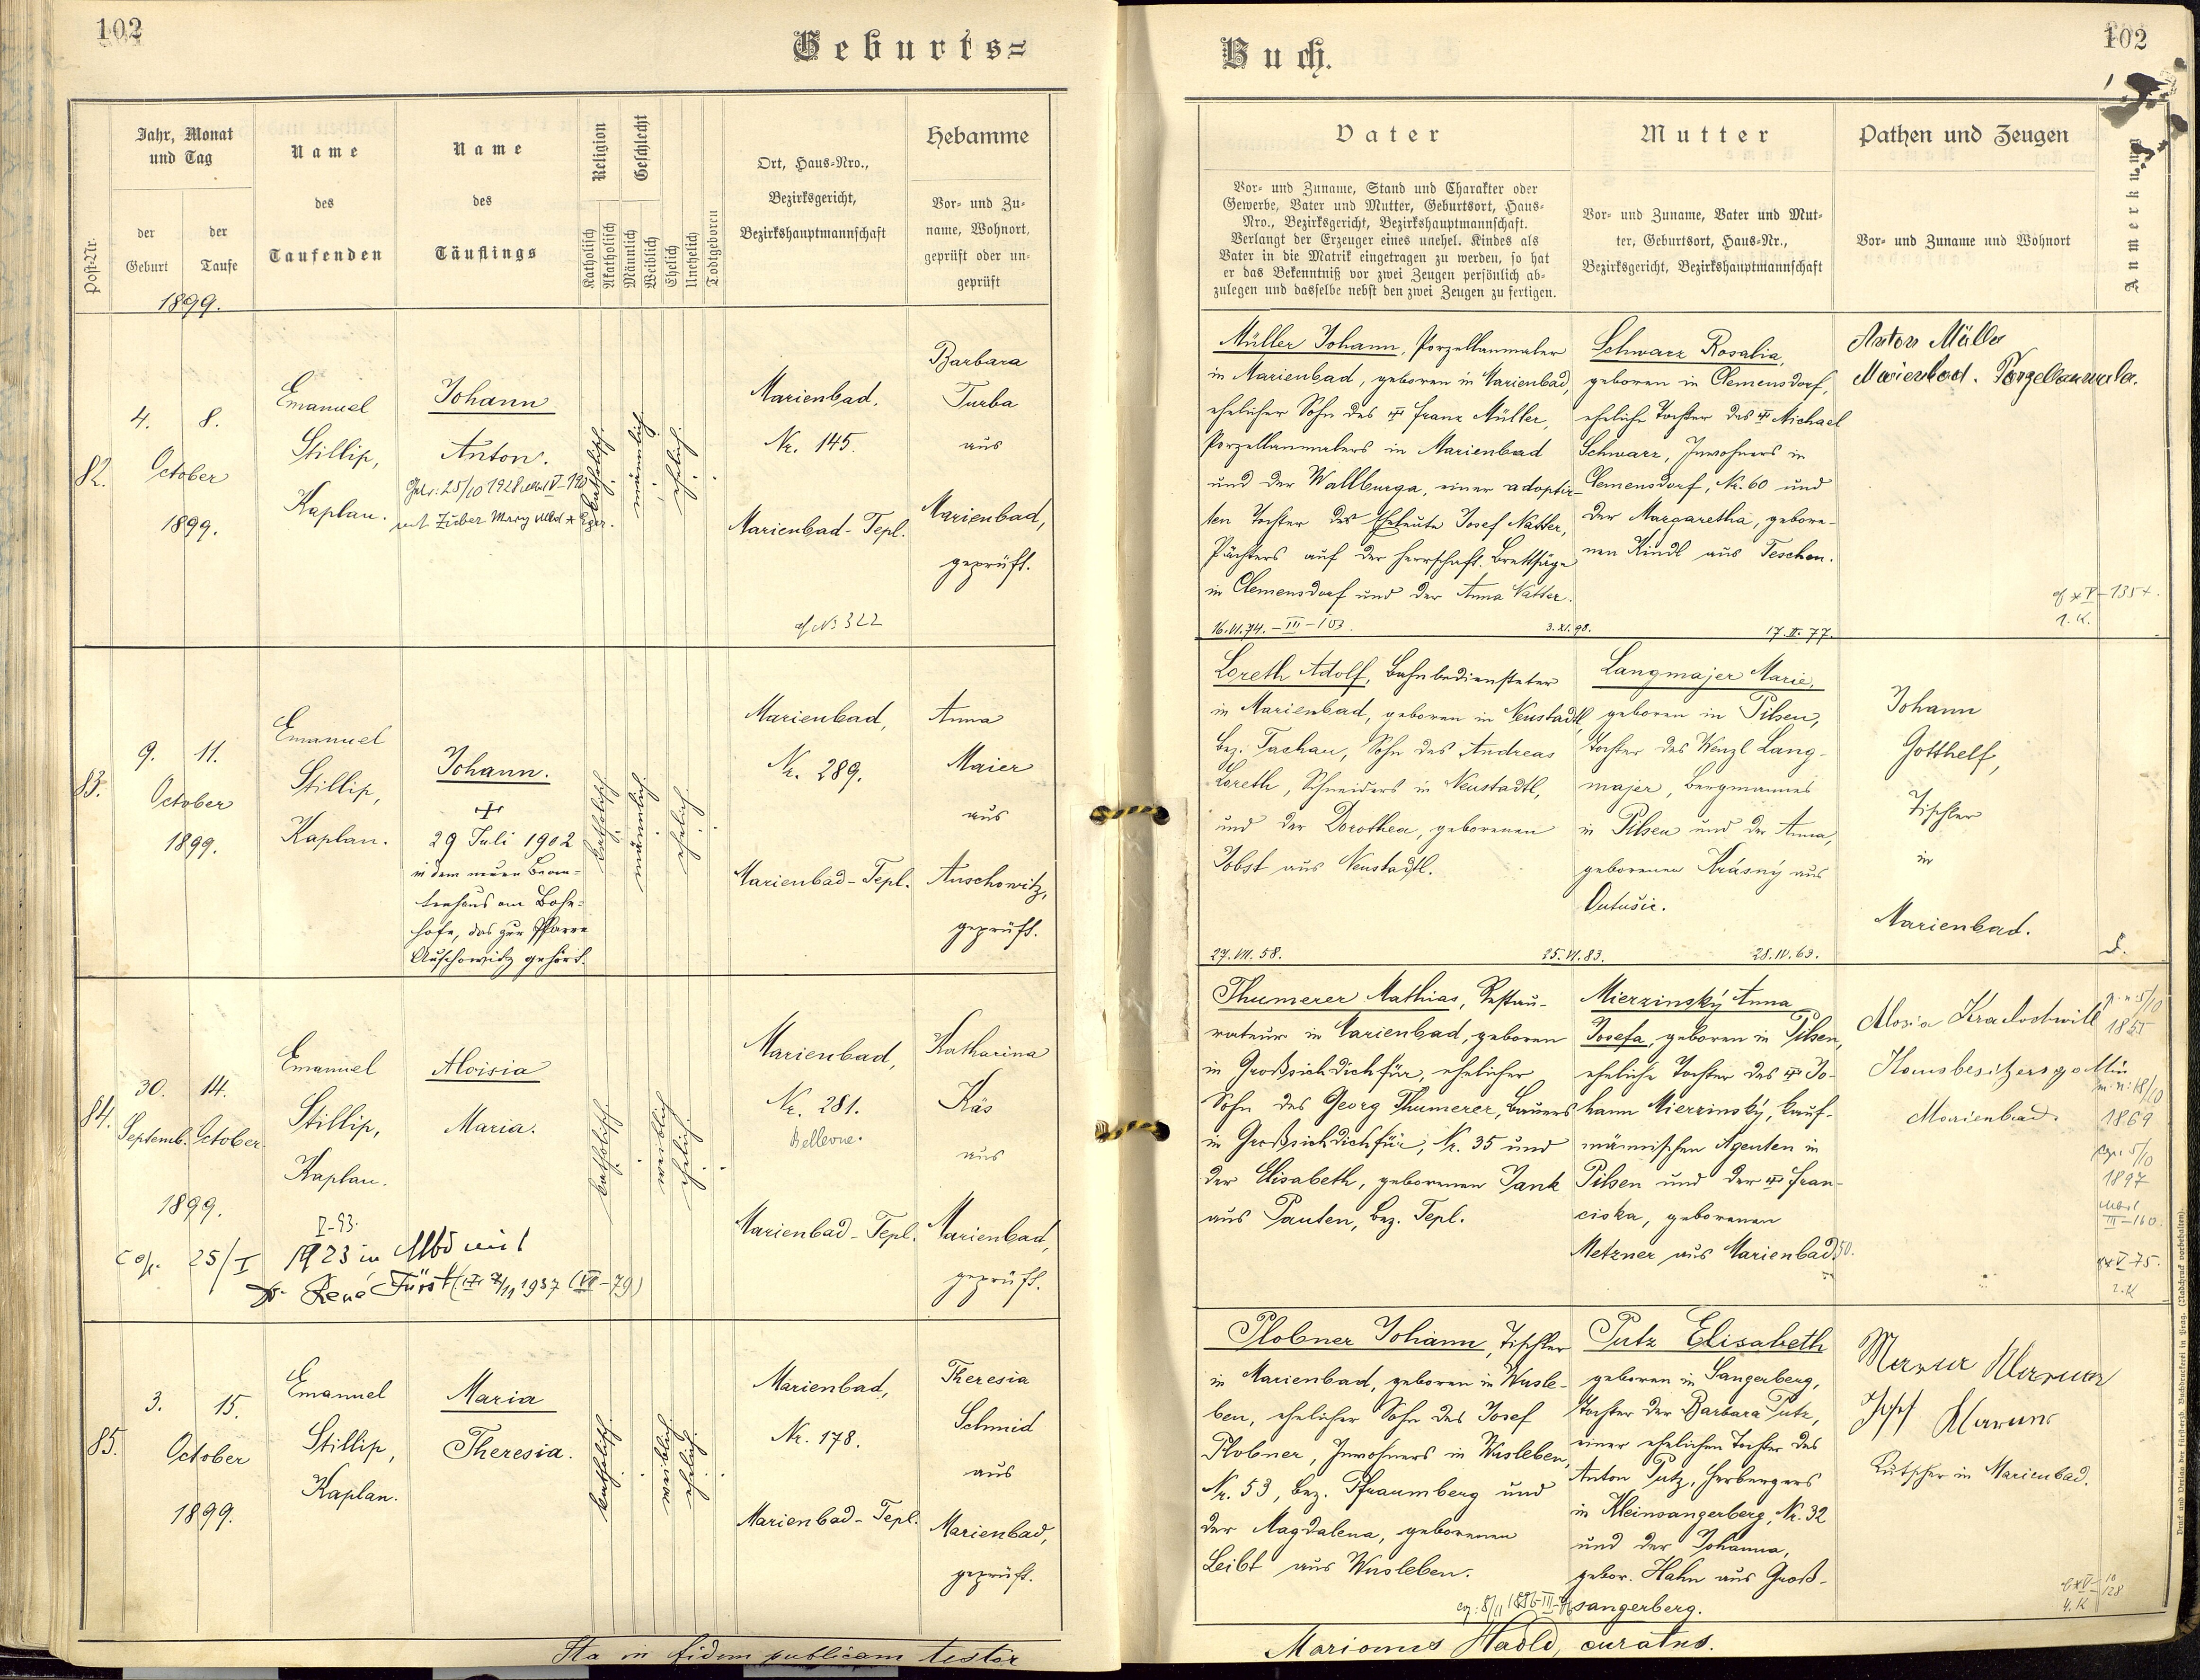 102
Geburts=
Post-Nr.
Jahr, Monat
und Tag
der
Geburt
der
Taufe
1899.
Name
des
Taufenden
Name
des
Täuflings
Religion
Katholisch
Akatholisch
Geschlecht
Männlich
Weiblich
Ehelich
Unehelich
Todtgeboren
Ort, Haus-Nro.,
Bezirksgericht,
Bezirkshauptmannschaft
Hebamme
Vor- und Zu-
name, Wohnort,
geprüft oder un-
geprüft
82.
4. 8.
October
1899.
Emanuel
Stillip,
Kaplan.
Johann
Anton.
25/10 1928
katholisch.
männlich
ehelich.
Marienbad.
Nr. 145.
Marienbad-Tepl.
No 322
Barbara
Turba
aus
Marienbad,
geprüft.
83.
9. 11.
October
1899.
Emanuel
Stillip,
Kaplan.
Johann.
+
29 Juli 1902
in dem neuen Beam-
tenhaus am Bahn-
hofe, das zur Pfarre
Auschowitz gehört.
katholisch
männlich
ehelich.
Marienbad,
Nr. 289.
Marienbad-Tepl.
Anna
Maier
aus
Auschowitz,
geprüft.
84.
30. 14.
Septemb. October
1899.
Emanuel
Stillip,
Kaplan.
Aloisia
Maria.
V-93.
cop. 25/I 1923 in Mbd mit
Dr. René Fürst (7/11 1937 (VII-79)
katholisch
weiblich
ehelich.
Marienbad,
Nr. 281.
Bellevue.
Marienbad-Tepl.
Katharina
Käs
aus
Marienbad,
geprüft.
85.
3. 15.
October
1899.
Emanuel
Stillip,
Kaplan.
Maria
Theresia.
katholisch
weiblich
ehelich.
Marienbad,
Nr. 178.
Marienbad-Tepl.
Theresia
Schmid
aus
Marienbad,
geprüft.
Ita in fidem publicam testor
Buch.
102
Vater
Vor- und Zuname, Stand und Charakter oder
Gewerbe, Vater und Mutter, Geburtsort, Haus-
Nro., Bezirksgericht, Bezirkshauptmannschaft.
Verlangt der Erzeuger eines unehel. Kindes als
Vater in die Matrik eingetragen zu werden, so hat
er das Bekenntniß vor zwei Zeugen persönlich ab-
zulegen und dasselbe nebst den zwei Zeugen zu fertigen.
Mutter
Vor- und Zuname, Vater und Mut-
ter, Geburtsort, Haus-Nr.,
Bezirksgericht, Bezirkshauptmannschaft
Pathen und Zeugen
Vor- und Zuname und Wohnort
Anmerkung
Müller Johann, Porzellanmaler
in Marienbad, geboren in Marienbad,
ehelicher Sohn des Franz Müller,
Porzellanmalers in Marienbad
und der Wallburga, einer adoptir-
ten Tochter der Eheleute Josef Natter,
Pächters auf der herrschaft. Brettsäge
in Clemensdorf und der Anna Natter.
16.VI.74. - III - 103.
3.XI.98.
Schwarz Rosalia,
geboren in Clemensdorf,
eheliche Tochter des Michael
Schwarz, Inwohners in
Clemensdorf, Nr. 60 und
der Margaretha, gebore-
nen Kindl aus Teschen.
17.II.77.
Anton Müller
Marienbad. Porzellanmaler.
1.K.
Loreth Adolf, Bahnbediensteter
in Marienbad, geboren in Neustadtl,
Bez. Tachau, Sohn des Andreas
Loreth, Schneiders in Neustadtl,
und der Dorothea, geborenen
Jobst aus Neustadtl.
27.VII.58.
25.VI.83.
Langmajer Marie,
geboren in Pilsen,
Tochter des Wenzl Lang-
majer, Bergmannes
in Pilsen und der Anna,
geborenen Krásný aus
Outušic.
28.IV.63.
Johann
Gotthelf,
Tischler
in
Marienbad.
Thumerer Mathias, Restau-
rateur in Marienbad, geboren
in Großsichdichfür, ehelicher
Sohn des Georg Thumerer, Bauers
in Großsichdichfür, Nr. 35 und
der Elisabeth, geborenen Jank
aus Pauten, Bez. Tepl.
Mierzinský Anna
Josefa, geboren in Pilsen,
eheliche Tochter des Jo-
hann Mierzinský, kauf-
männischen Agenten in
Pilsen und der Fran-
ciska, geborenen
Metzner aus Marienbad
Aloisia Kralochwill
Hausbesitzersgattin
Marienbad.
5/10
1855
18/10
1869
5/10
1897
III-160.
V-75.
2.K
Plobner Johann, Tischler
in Marienbad, geboren in Wusle-
ben, ehelicher Sohn des Josef
Plobner, Inwohners in Wusleben,
Nr. 53, Bez. Pfraumberg und
der Magdalena, geborenen
Leibt aus Wusleben.
Putz Elisabeth
geboren in Sangerberg,
Tochter der Barbara Putz,
einer ehelichen Tochter des
Anton Putz, Herbergers
in Kleinsangerberg, Nr. 32
und der Johanna,
gebor. Hahn aus Groß-
sangerberg.
Josef
Kutscher in Marienbad.
4.K
Marianus Hadld, curatus.
Druck und Verlag der fürsterzb. Buchdruckerei in Prag. (Nachdruck vorbehalten).